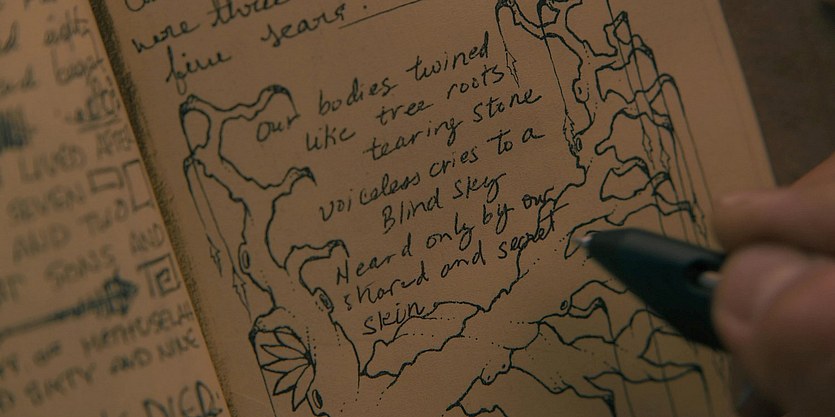 were three
five sears.
our bodies twined
like tree roots
tearing stone
voiceless cries to a
Blind sky
Heard only by our
shared and secret
skin.
LIVED AFTE
SEVEN
AND TWO
SONS AND
OF METHUSELA
SIXTY AND NINE
DIED: